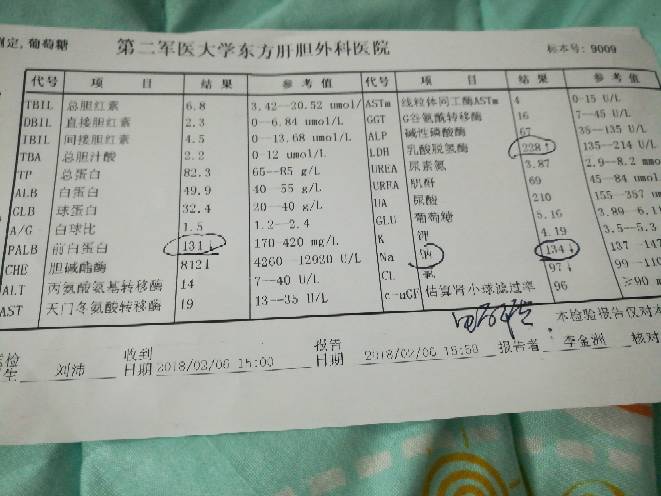 测定,葡萄糖 第二军医大学东方肝胆外科医院 标本号: 9009
代号 项 目 结 果 参 考 值 代号 项 目 结 果 参 考 值
TBIL 总胆红素 6.8 3.42--20.52 umol/ ASTm 线粒体同工酶ASTm 4 0-15 U/L
DBIL 直接胆红素 2.3 0--6.84 umol/L GGT G谷氨酰转移酶 16 7--45 U/L
TBIL 间接胆红素 4.5 0--13.68 umol/L ALP 碱性磷酸酶 67 35--135 U/L
TBA 总胆汁酸 2.2 0-12 umol/L LDH 乳酸脱氢酶 228↑ 135--214 U/L
TP 总蛋白 82.3 65--85 g/L UREA 尿素氮 3.87 2.9--8.2 mmo
ALB 白蛋白 49.9 40--55 g/L 肌酐 69 45--84 umol
GLB 球蛋白 32.4 20--40 g/L UA 尿酸 210 155--357 um
A/G 白球比 1.5 1.2--2.4 GLU 葡萄糖 5.16 3.89-6.1
PALB 前白蛋白 131↓ 170-420 mg/L K 钾 4.19 3.5--5.3
CHE 胆碱酯酶 4260--12920 U/L Na 钠 134↓ 137-147
ALT 丙氨酸氨基转移酶 14 7--40 U/L CL 氯 97↓ 99--110
AST 天门冬氨酸转移酶 19 13--35 U/L 估算肾小球滤过率 96 ≥90 m
本检验报告仅对本
刘沛 收到日期 2018/02/06 15:00 报告日期 2018/02/06 15:58 报告者: 李金洲 核对